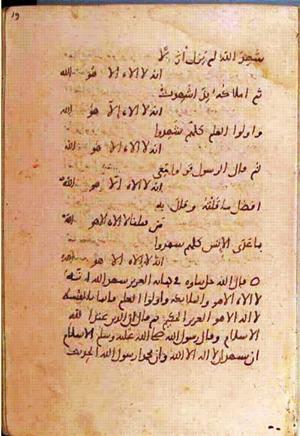 ١٥
شهد الله لم يزل أن لا
انه لا اله الا هو الله
ثم املاكه بذا شهدت
انه لا اله الا هو الله
واولوا العلم كلهم شهدوا
انه لا اله الا هو الله
ثم قال الرسول قولوا معي
انه لا اله الا هو الله
افضل ما قلته وقال به
من قبلنا لا اله الا هو الله
ما عدى الإنس كلهم شهدوا
انه لا اله الا هو الله
قال الله في كتابه العزيز شهد الله انه
لا اله الا هو والملائكة واولوا العلم قائما بالقسط
لا اله الا هو العزيز الحكيم ثم قال ان الدين عند الله
الاسلام وقال رسول الله صلى الله عليه وسلم الاسلام
ان تشهد ان لا اله الا الله وان محمدا رسول الله الحديث